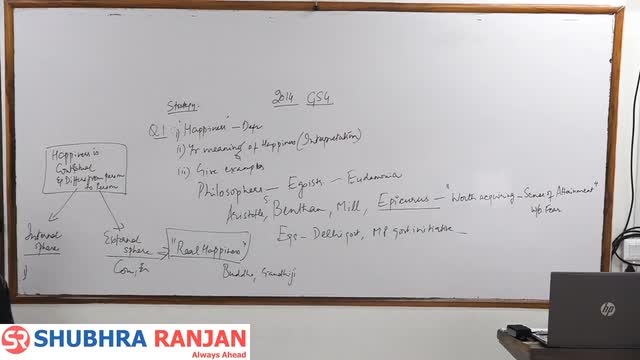 2014 GS4
Strategy:
Q1 i) "Happiness" - Defn
(ii) Yr meaning of Happiness (Interpretation)
iii) Give examples
Philosophers - Egoists - Eudamonia
Aristotle, Bentham, Mill, Epicurus - "Worth acquiring - Sense of Attainment"
w/o Fear
Egs - Delhi govt, MP govt initiative -
Happiness is
& Differs from person
to Person
Internal
sphere
i)
External
sphere
"Real Happiness"
Buddha, Gandhiji
hp
SR SHUBHRA RANJAN
Always Ahead